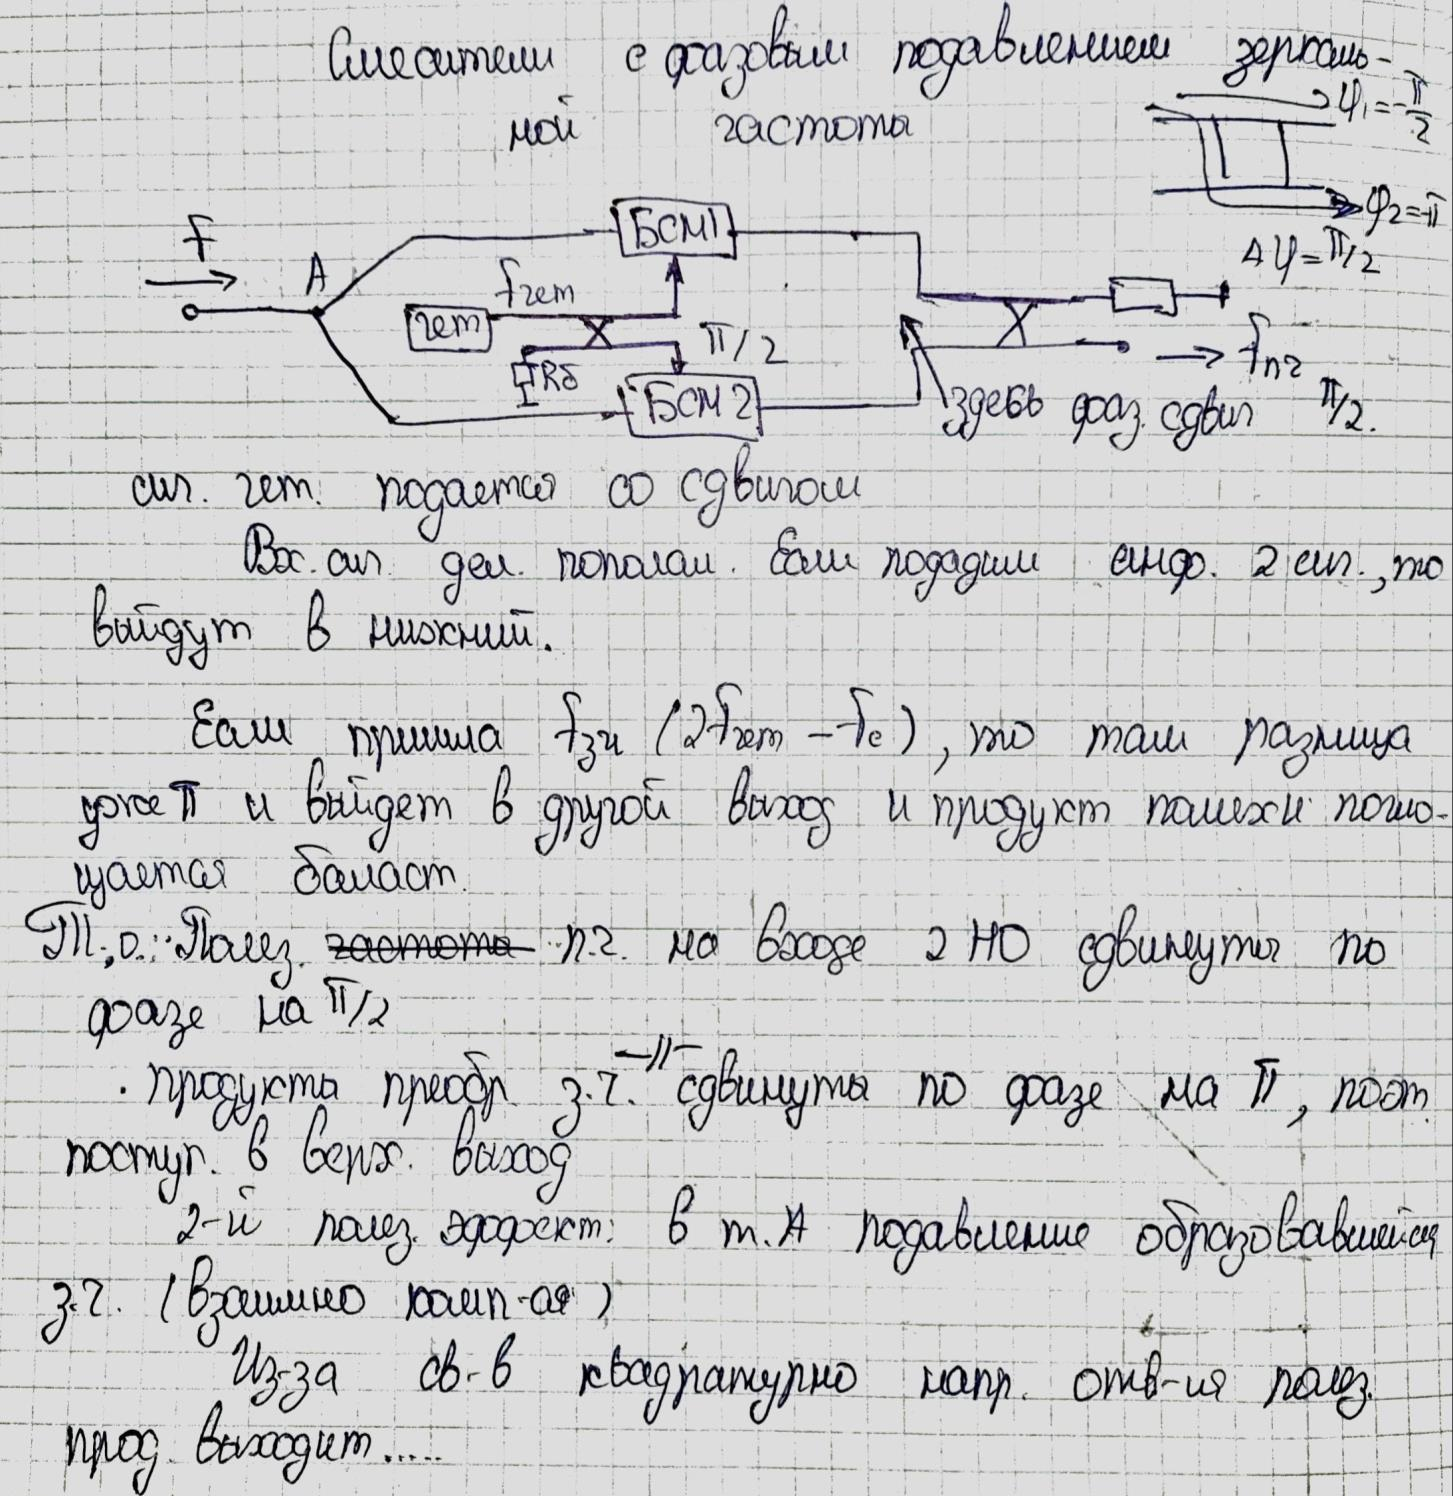 Смесители с фазовым подавлением зеркаль-
ной частоты
φ₁=-π/2
φ₂=-π
Δφ=π/2
f
A
БСМ1
fгет
гет
π/2
Rδ
БСМ2
fпч
здесь фаз. сдвиг π/2.
сиг. гет. подается со сдвигом
Вх. сиг. дел. пополам. Если подадим синф. 2 сиг., то
выйдут в нижний.
Если пришла fзч (2fгет - fс), то там разница
уже π и выйдет в другой выход и продукт помехи погло-
щается баласт.
Т.о.: Полез. частота п.ч. на входе 2 НО сдвинуты по
фазе на π/2
· продукты преобр. з.ч. -//- сдвинуты по фазе на π, поэт.
поступ. в верх. выход
2-й полез. эффект: в т. А подавление образовавшейся
з.ч. (взаимно комп-ая)
Из-за св-в квадратурно напр. отв-ия полез.
прод. выходит.....